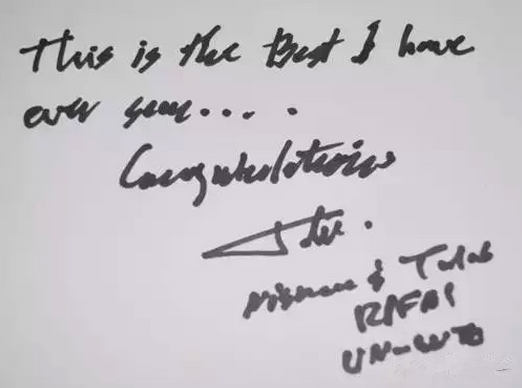 This is the Best I have
ever seen.... .
Congratulations
& Taleb
RIFAI
UN-WTO